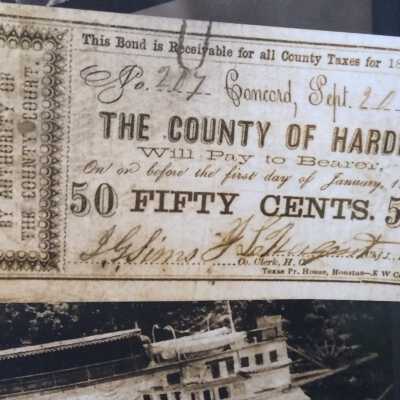 This Bond is Receivable for all County Taxes for 18
No. 207 Concord, Sept. 20
THE COUNTY OF HARDI
Will Pay to Bearer,
On or before the first day of January, 1
50 FIFTY CENTS. 5
J G Sims
Co. Clerk, H. C.
Texas Pr. House, Houston—E W C
BY AUTHORITY OF
THE COUNTY COURT.